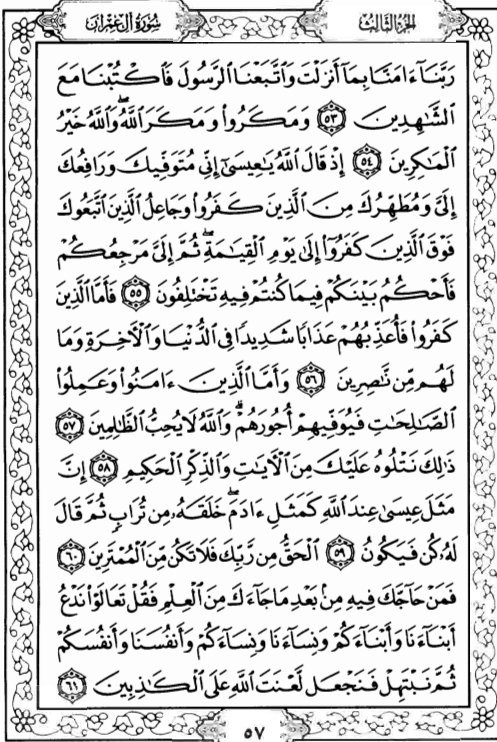 سُورَةُ آلِ عِمْرَانَ
الجُزْءُ الثَّالِثُ
رَبَّنَآ ءَامَنَّا بِمَآ أَنزَلْتَ وَٱتَّبَعْنَا ٱلرَّسُولَ فَٱكْتُبْنَا مَعَ
ٱلشَّٰهِدِينَ ٥٣ وَمَكَرُوا۟ وَمَكَرَ ٱللَّهُ ۖ وَٱللَّهُ خَيْرُ
ٱلْمَٰكِرِينَ ٥٤ إِذْ قَالَ ٱللَّهُ يَٰعِيسَىٰٓ إِنِّى مُتَوَفِّيكَ وَرَافِعُكَ
إِلَىَّ وَمُطَهِّرُكَ مِنَ ٱلَّذِينَ كَفَرُوا۟ وَجَاعِلُ ٱلَّذِينَ ٱتَّبَعُوكَ
فَوْقَ ٱلَّذِينَ كَفَرُوٓا۟ إِلَىٰ يَوْمِ ٱلْقِيَٰمَةِ ۖ ثُمَّ إِلَىَّ مَرْجِعُكُمْ
فَأَحْكُمُ بَيْنَكُمْ فِيمَا كُنتُمْ فِيهِ تَخْتَلِفُونَ ٥٥ فَأَمَّا ٱلَّذِينَ
كَفَرُوا۟ فَأُعَذِّبُهُمْ عَذَابًا شَدِيدًا فِى ٱلدُّنْيَا وَٱلْءَاخِرَةِ وَمَا
لَهُم مِّن نَّٰصِرِينَ ٥٦ وَأَمَّا ٱلَّذِينَ ءَامَنُوا۟ وَعَمِلُوا۟
ٱلصَّٰلِحَٰتِ فَيُوَفِّيهِمْ أُجُورَهُمْ ۗ وَٱللَّهُ لَا يُحِبُّ ٱلظَّٰلِمِينَ ٥٧
ذَٰلِكَ نَتْلُوهُ عَلَيْكَ مِنَ ٱلْءَايَٰتِ وَٱلذِّكْرِ ٱلْحَكِيمِ ٥٨ إِنَّ
مَثَلَ عِيسَىٰ عِندَ ٱللَّهِ كَمَثَلِ ءَادَمَ ۖ خَلَقَهُۥ مِن تُرَابٍ ثُمَّ قَالَ
لَهُۥ كُن فَيَكُونُ ٥٩ ٱلْحَقُّ مِن رَّبِّكَ فَلَا تَكُن مِّنَ ٱلْمُمْتَرِينَ ٦٠
فَمَنْ حَآجَّكَ فِيهِ مِنۢ بَعْدِ مَا جَآءَكَ مِنَ ٱلْعِلْمِ فَقُلْ تَعَالَوْا۟ نَدْعُ
أَبْنَآءَنَا وَأَبْنَآءَكُمْ وَنِسَآءَنَا وَنِسَآءَكُمْ وَأَنفُسَنَا وَأَنفُسَكُمْ
ثُمَّ نَبْتَهِلْ فَنَجْعَل لَّعْنَتَ ٱللَّهِ عَلَى ٱلْكَٰذِبِينَ ٦١
٥٧